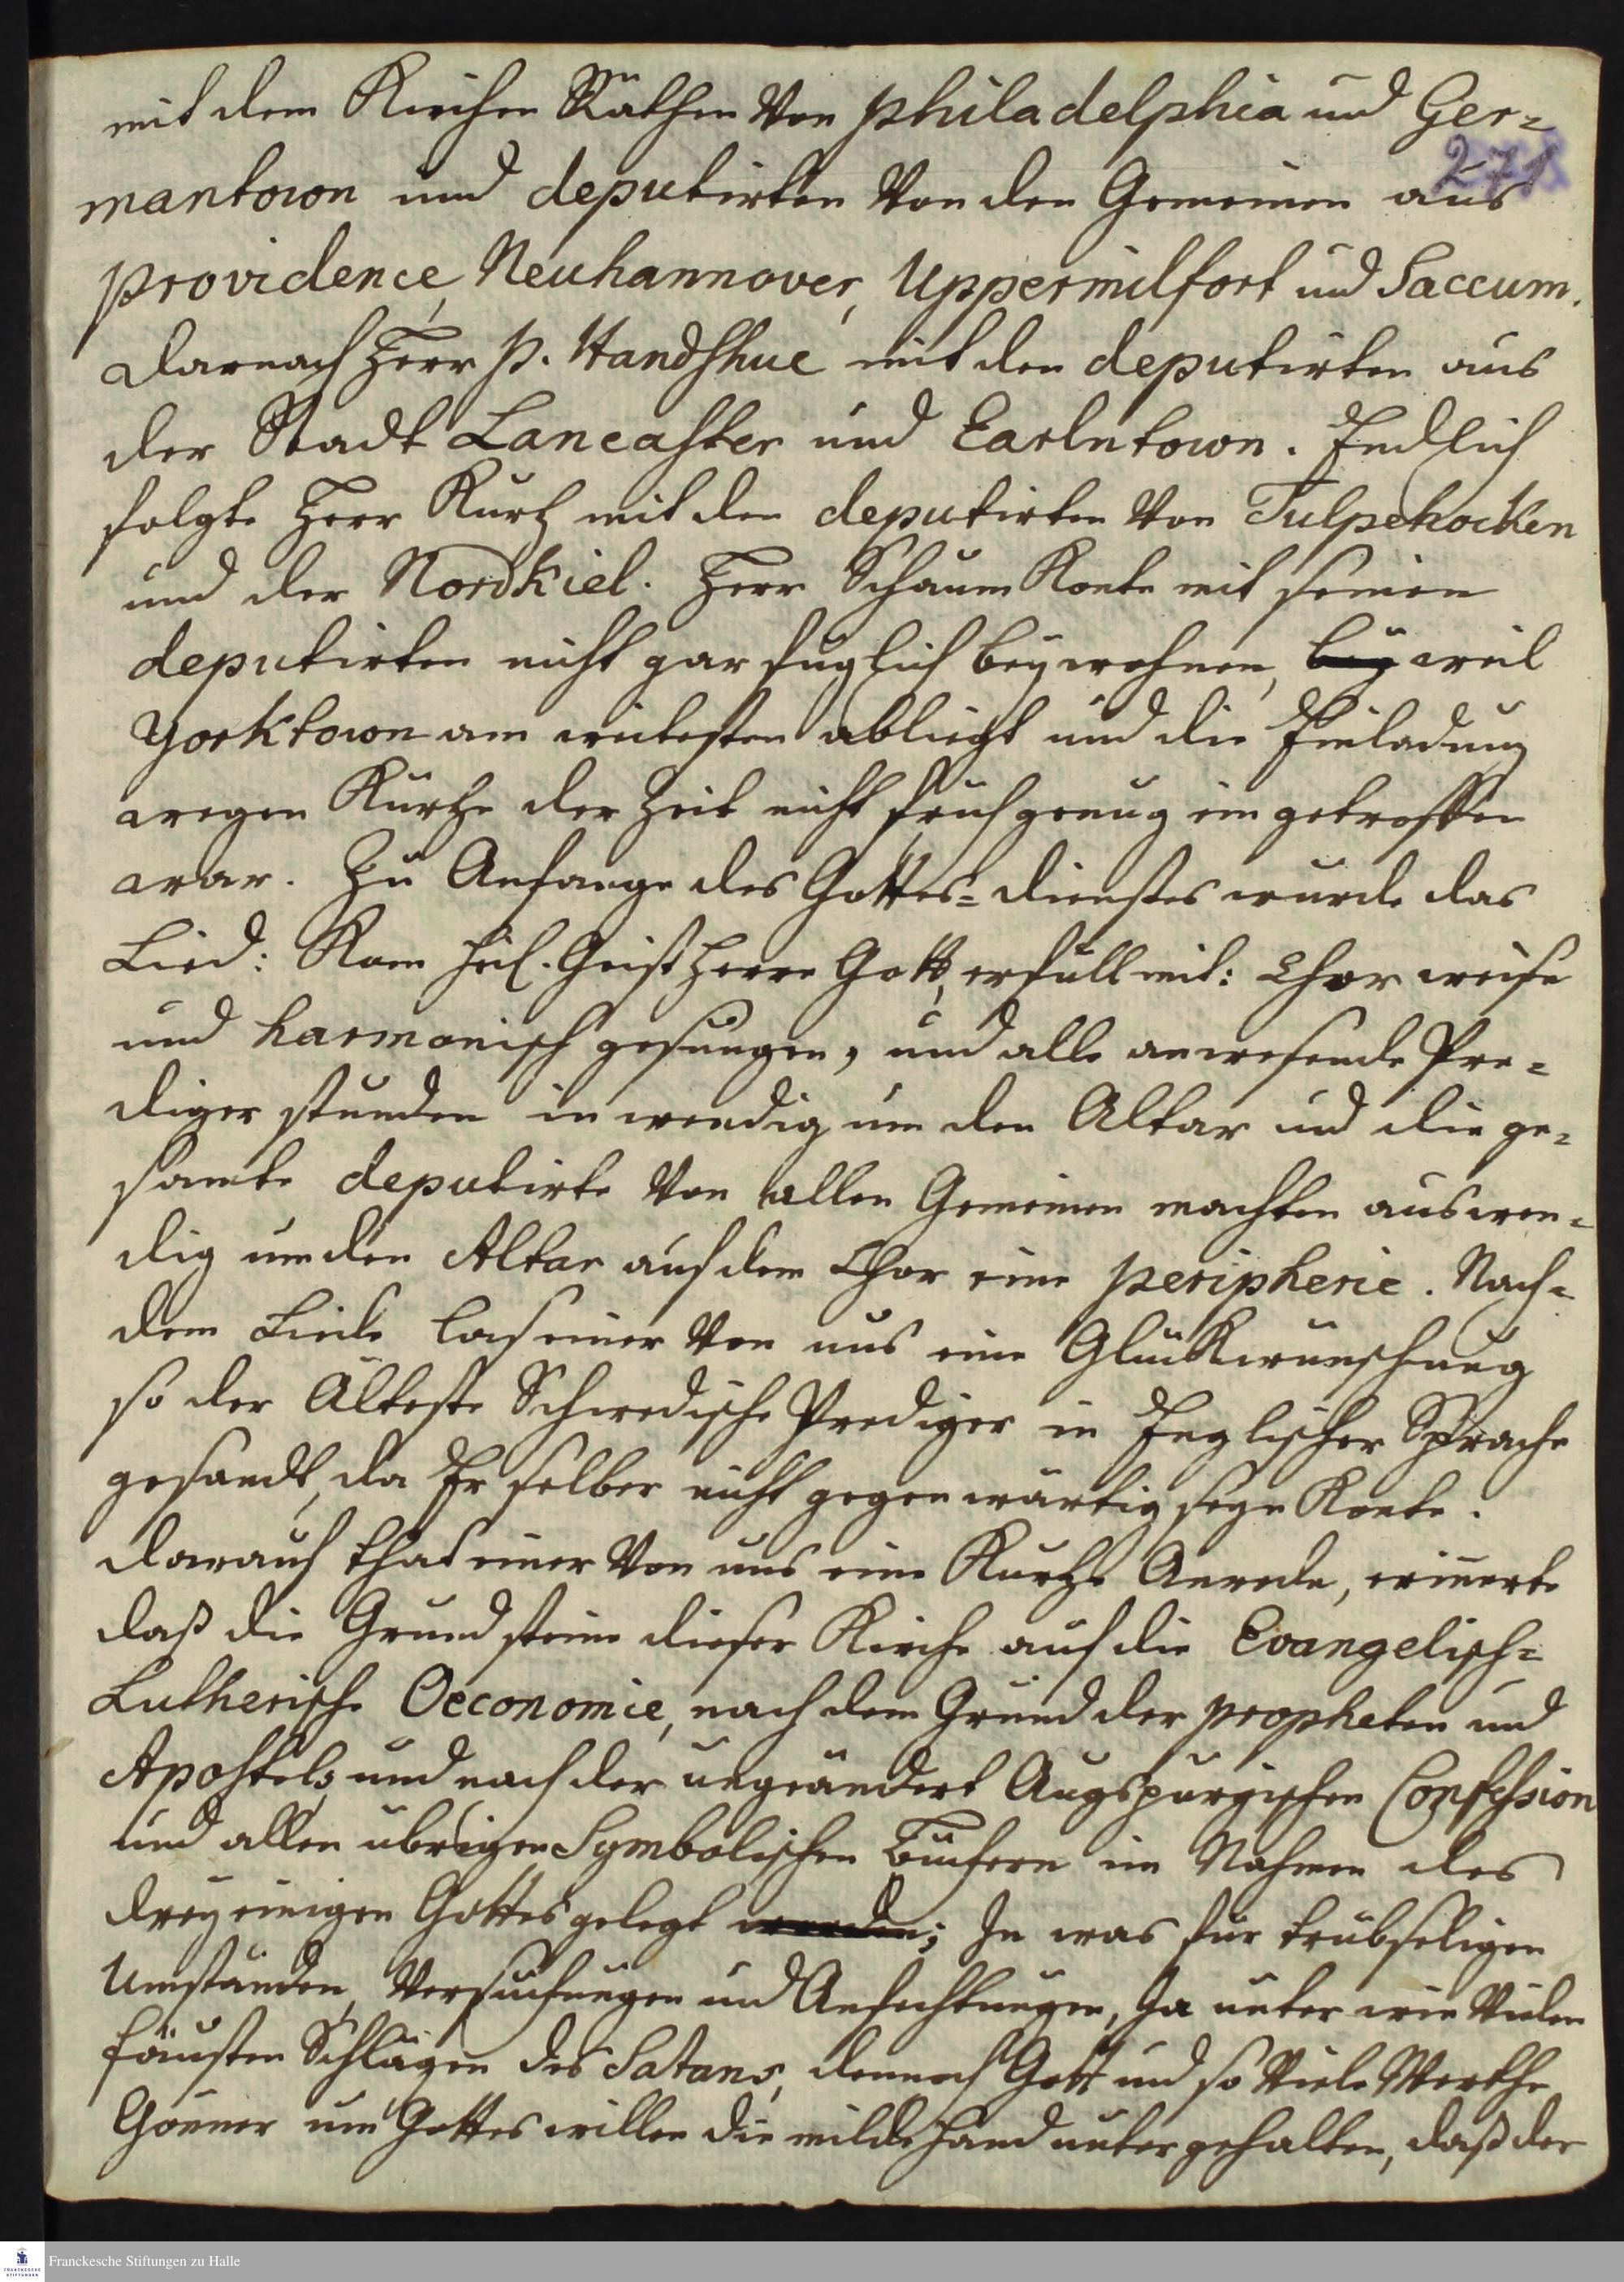 mit dem Kirchen Räthen Von philadelphia und Ger=
271
mantown und deputirten Von den Gemeinen aus
providence, Neuhannover, Uppermilfort und Saccum.
darnach Herr P. Handshue mit den deputirten aus
der Stadt Lancaster und Earlntown. Endlich
folgte Herr Kurtz mit den deputirten Von Tulpehocken
und der Nordkiel. Herr Schaum Konte mit seinen
deputirten nicht gar fuglich beywohnen, bey weil
Yorktown am weitesten abliegt und die Einladung
wegen Kürtze der Zeit nicht fruh genug ein getroffen
war. Zu Anfange des Gottes=dienstes wurde das
Lied: Kom heil. Geist Herre Gott, erfüll mit: Chor weise
und harmonisch gesungen, und alle anwesende Pre=
diger stunden inwendig um den Altar und die ge=
samte deputirte Von allen Gemeinen machten auswen=
dig um den Altar auf dem Chor eine peripherie. Nach=
dem Liede las einer Von uns eine Glückwünschung
so der Älteste Schwedische Prediger in Englischer Sprache
gesandt, da Er selber nicht gegenwärtig seyn Konte.
darauf that einer Von uns eine Kurtze Anrede, erinerte
daß die Grundsteine dieser Kirche auf die Evangelisch=
Lutherische Oeconomie, nach dem Grund der propheten und
Apostels, und nach der ungeändert Augspurgischen Confession
und allen übrigen Symbolischen Büchern im Nahmen des
dreyeinigen Gottes gelegt worden; In was für trübseligen
Umständen, Versuchungen und Anfechtungen, Ja unter wie Vielen
fäusten Schlägen des Satans, dennoch Gott und so Viele Werthe
Gönner um Gottes willen die milde Hand unter gehalten, daß der
Franckesche Stiftungen zu Halle